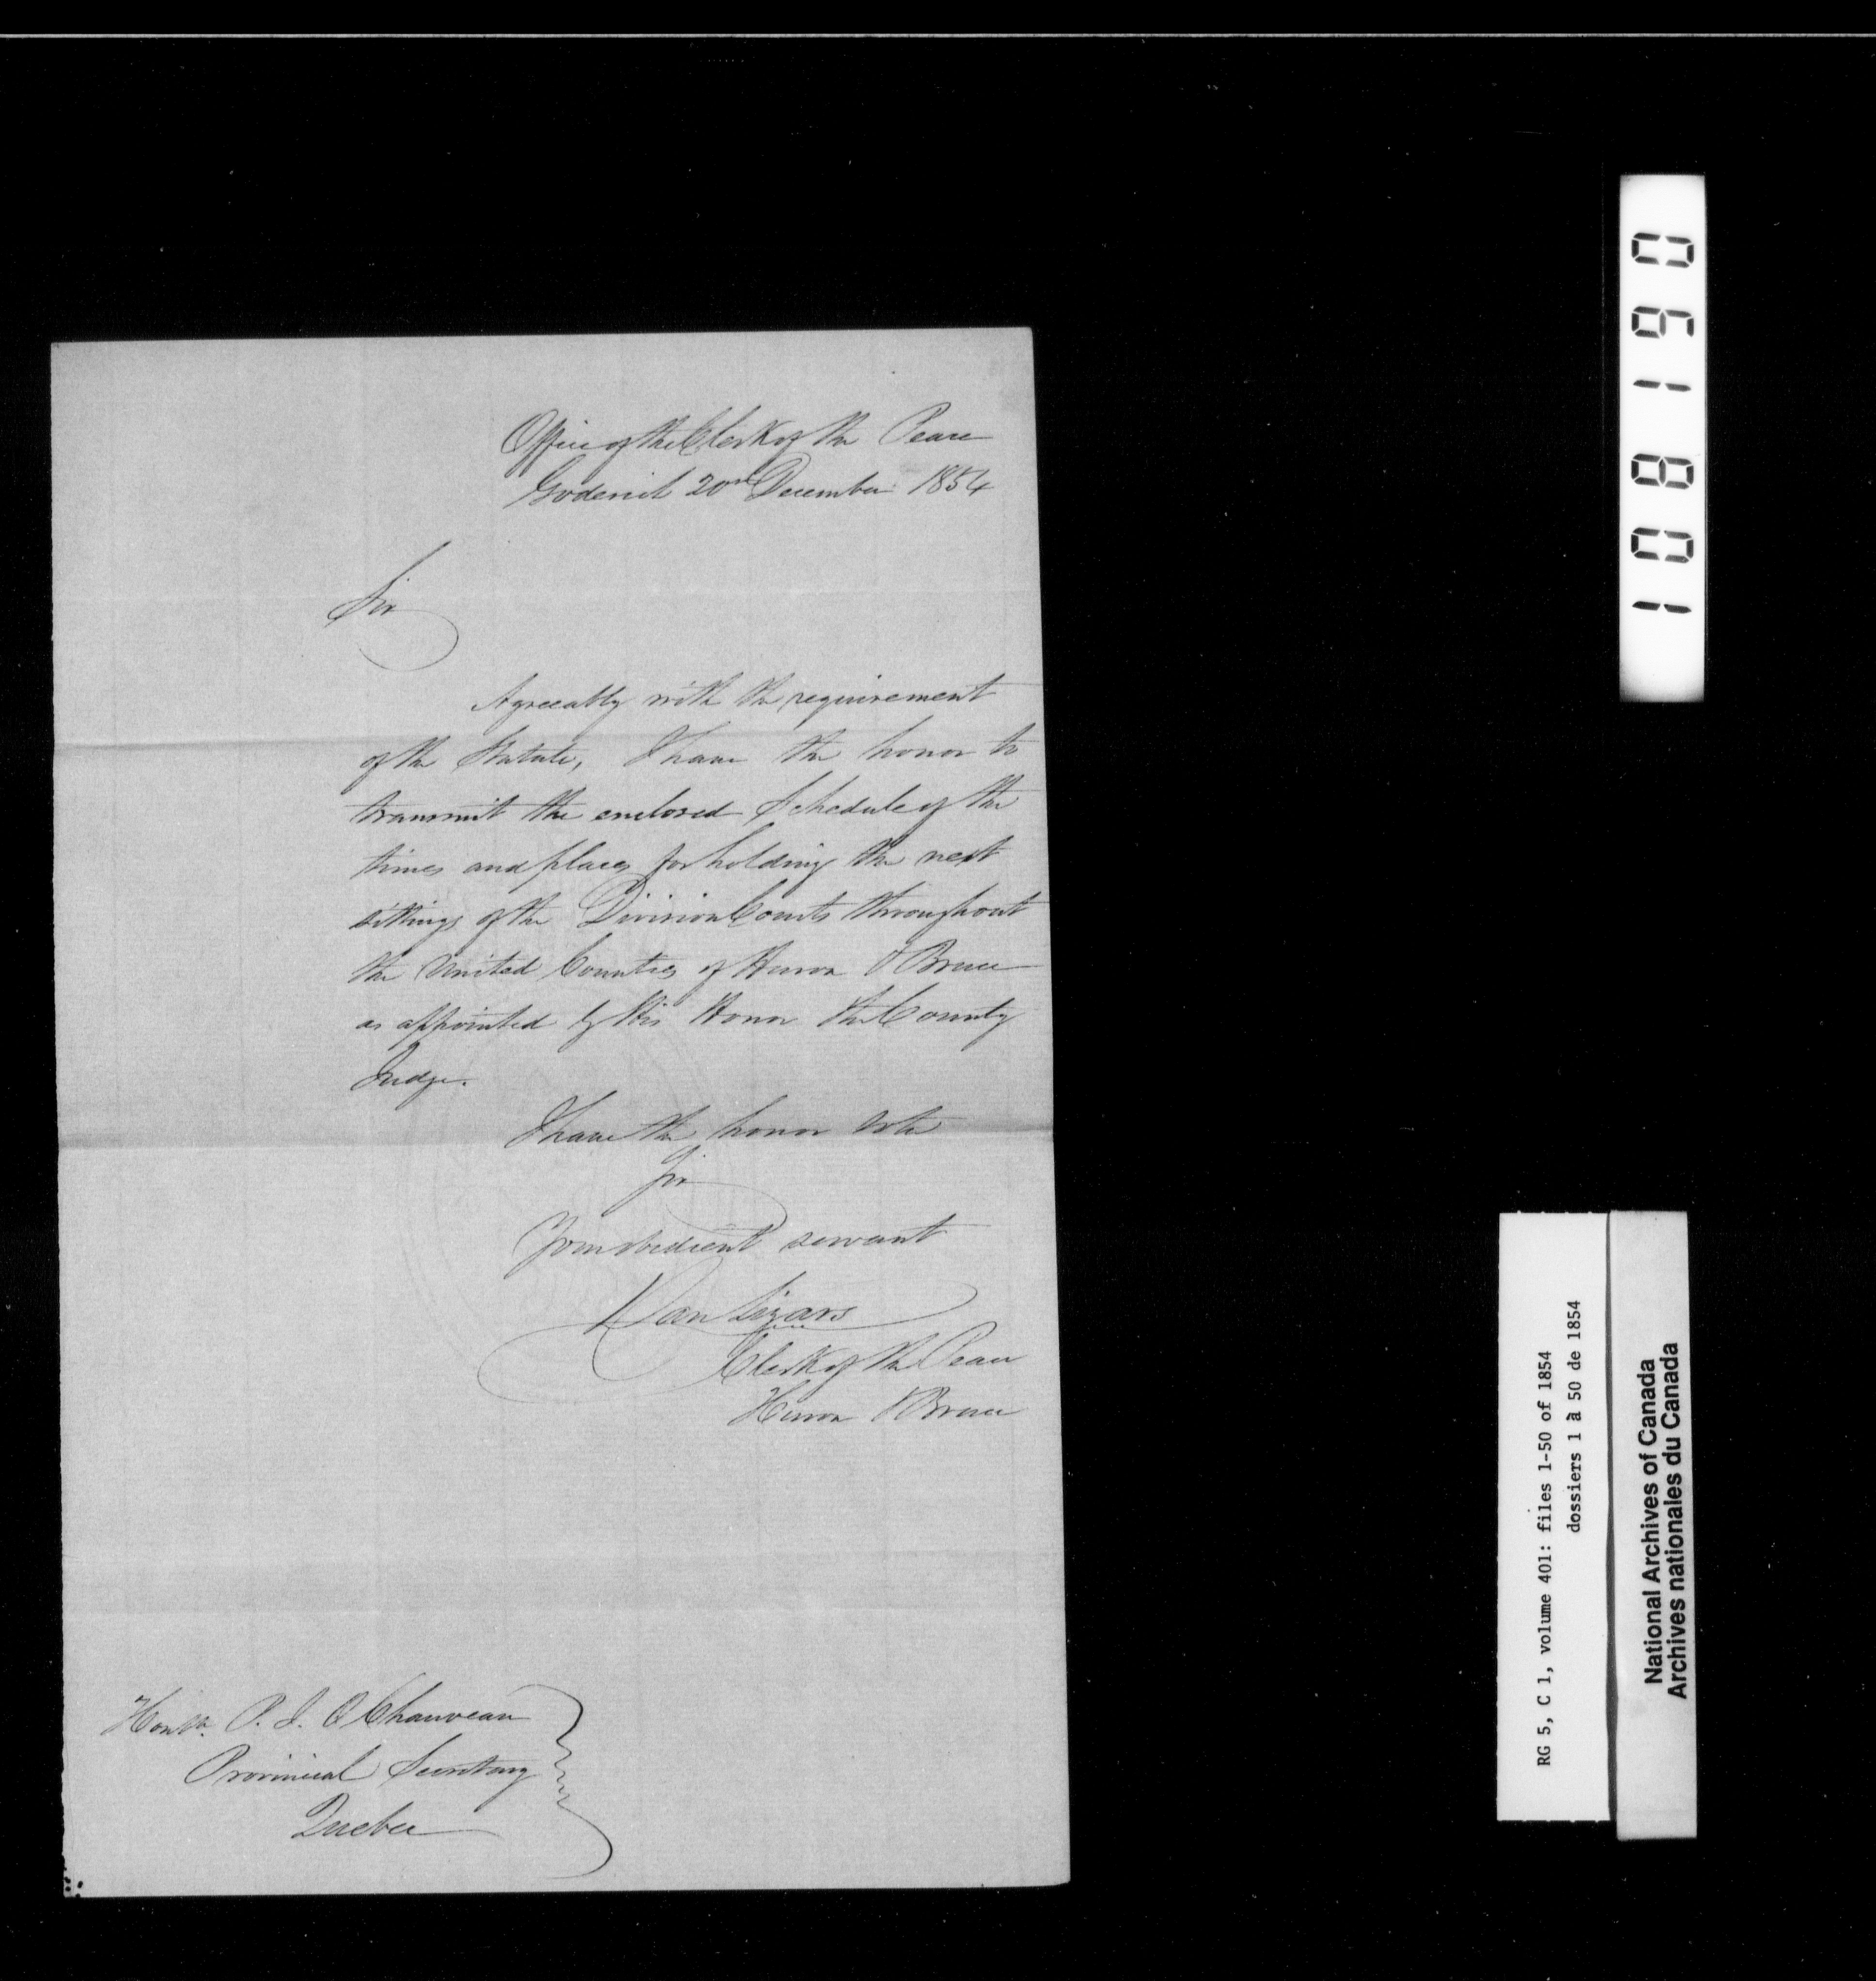 Office of the Clerk of the Peace
Goderich 20th December 1854
Sir
Agreeably with the requirement
of the Statute, I have the honor to
transmit the enclosed Schedule of the
times and places for holding the next
sittings of the Division Courts throughout
the United Counties of Huron & Bruce
as appointed by His Honor the County
Judge.
I have the honor to be
Sir
Your obedient servant
Dan Lizars
Clerk of the Peace
Huron & Bruce
Honble. P. J. O Chauveau
Provincial Secretary
Quebec
108190
RG 5, C 1, volume 401: files 1-50 of 1854
dossiers 1 à 50 de 1854
National Archives of Canada
Archives nationales du Canada